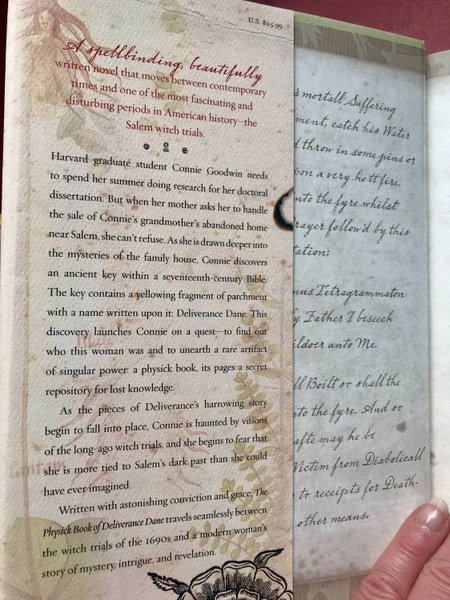 U.S. $25.99
A spellbinding, beautifully
written novel that moves between contemporary
times and one of the most fascinating and
disturbing periods in American history—the
Salem witch trials.
Harvard graduate student Connie Goodwin needs
to spend her summer doing research for her doctoral
dissertation. But when her mother asks her to handle
the sale of Connie's grandmother's abandoned home
near Salem, she can't refuse. As she is drawn deeper into
the mysteries of the family house, Connie discovers
an ancient key within a seventeenth-century Bible.
The key contains a yellowing fragment of parchment
with a name written upon it: Deliverance Dane. This
discovery launches Connie on a quest—to find out
who this woman was and to unearth a rare artifact
of singular power: a physick book, its pages a secret
repository for lost knowledge.
As the pieces of Deliverance's harrowing story
begin to fall into place, Connie is haunted by visions
of the long-ago witch trials, and she begins to fear that
she is more tied to Salem's dark past than she could
have ever imagined.
Written with astonishing conviction and grace, The
Physick Book of Deliverance Dane travels seamlessly between
the witch trials of the 1690s and a modern woman's
story of mystery, intrigue, and revelation.
mortall Suffering
ment, catch his Water
throw in some pins or
on a very hott fire.
nto the fyre whilst
rayer follow'd by this
tation:
nus Tetragrammaton
Father I beseech
ildoer unto Me.
ll Boilt so shall the
to the fyre. And so
afte may he be
Victim from Diabolicall
to receipts for Death-
other means.